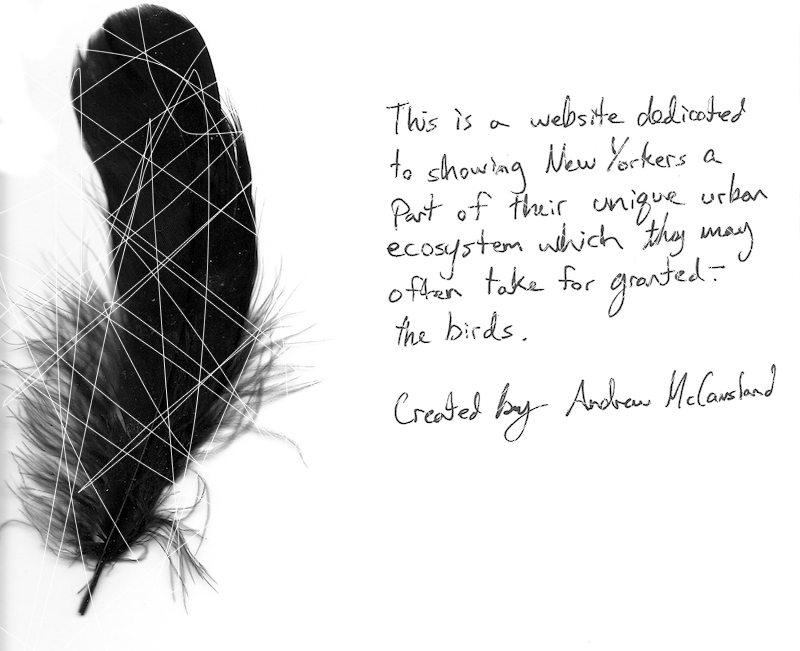 This is a website dedicated
to showing New Yorkers a
Part of their unique urban
ecosystem which they may
often take for granted-
the birds.
Created by Andrew McCausland